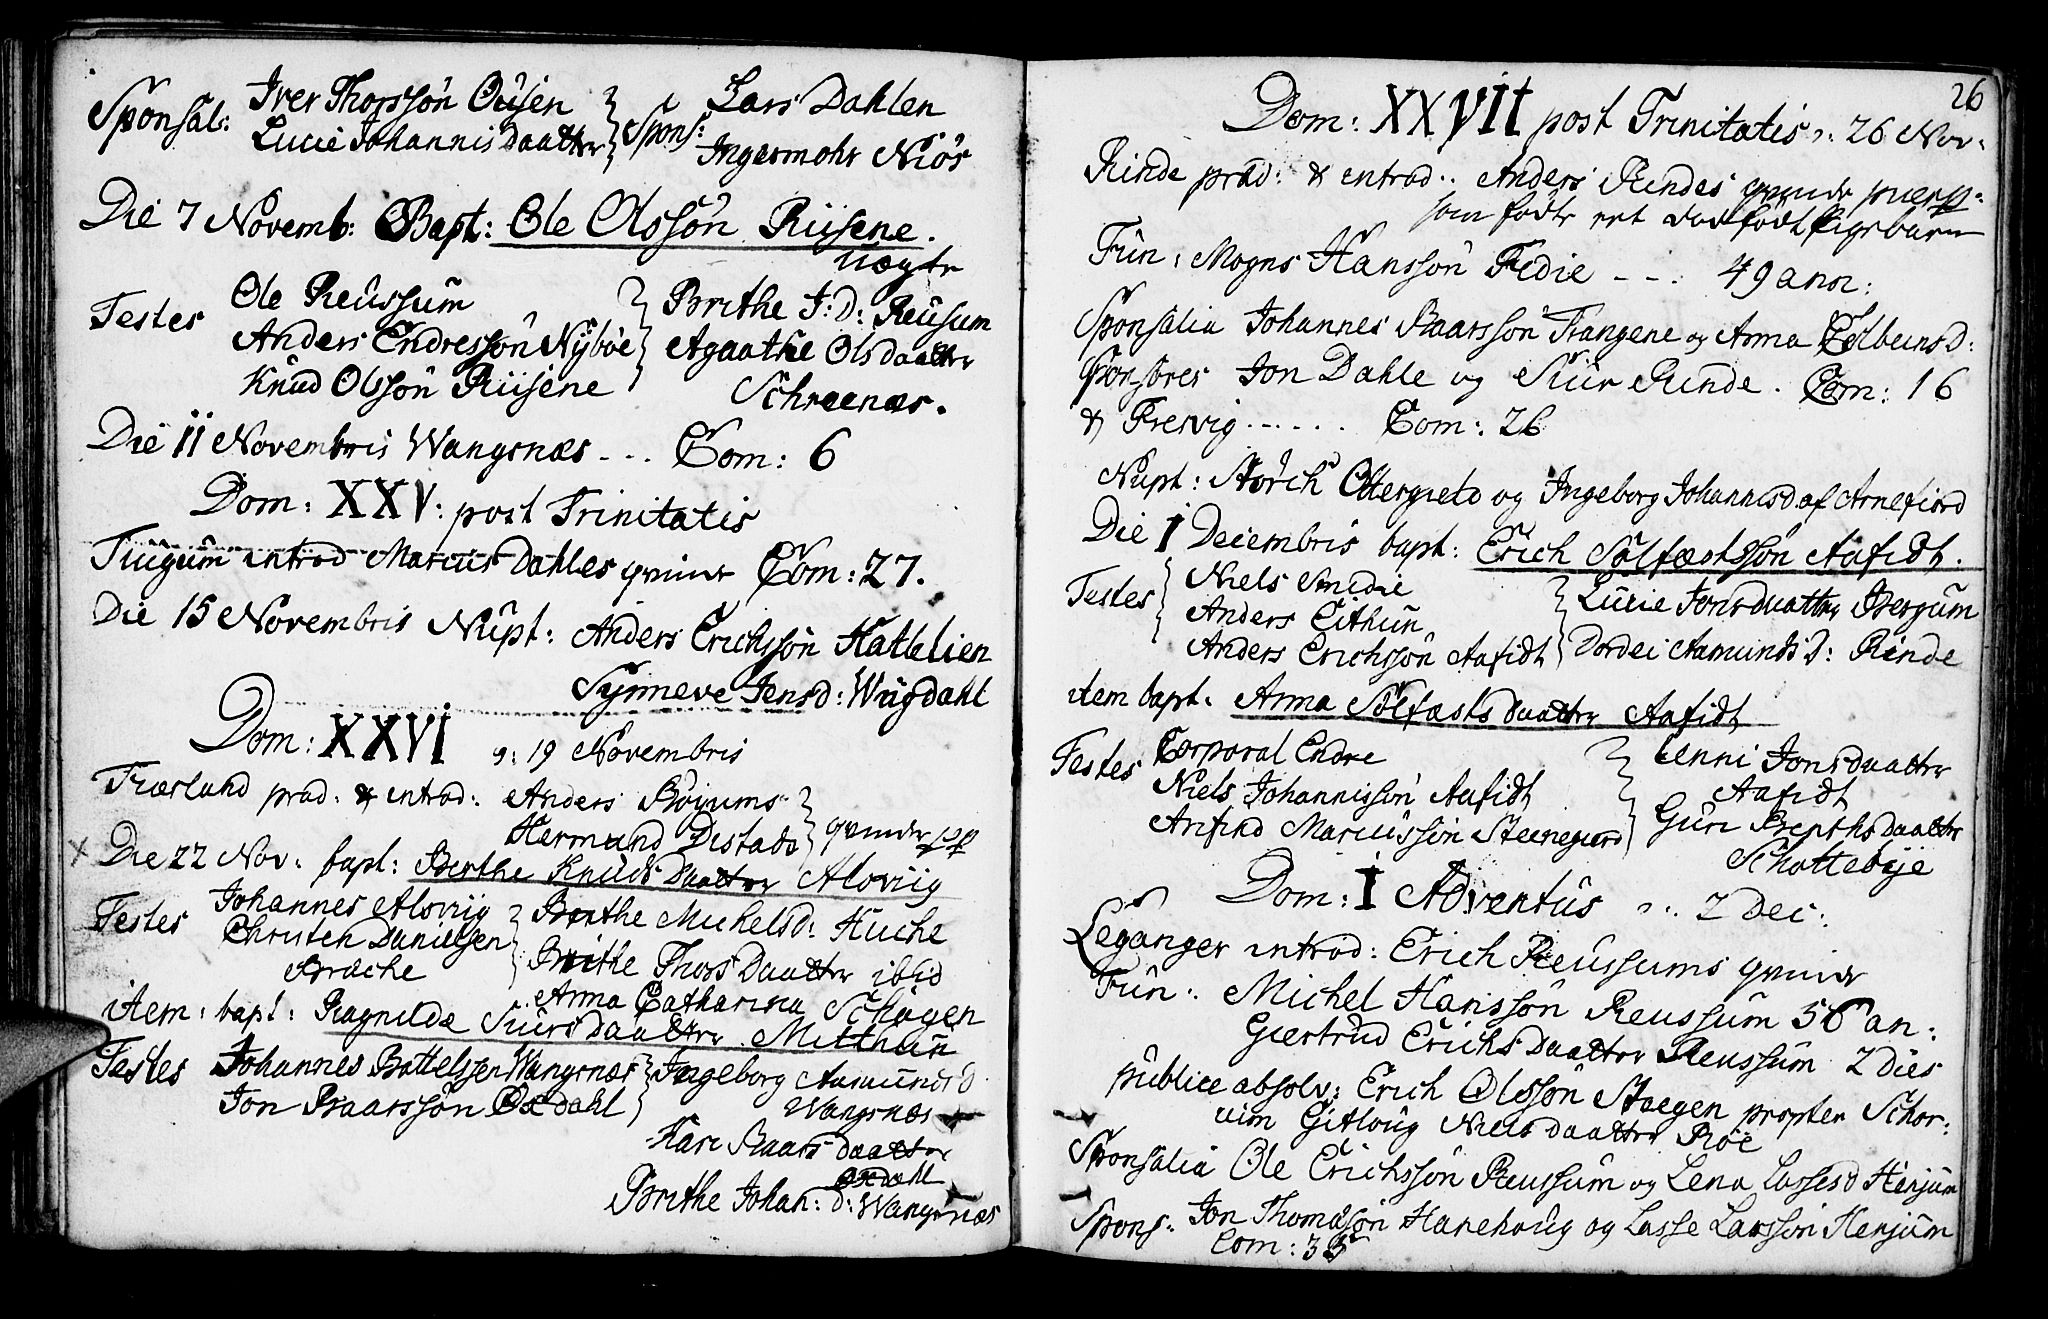 Sponsal: Iver Thorssön Oüsen } Spons: Lars Dahlen
Lucie Johannis daatter Ingermohr Niös
Die 7 Novemb: Bapt: Ole Olssön Riisene.
uægte
Testes Ole Reüssüm } Brithe J: D: Reüsum
Anders Endressön Nÿböe Agaathe Olsdaatter
Knüd Olssön Riisene Schreenæs.
Die 11 Novembris Wangsnæs - - . Com: 6
Dom: XXV: post Trinitatis
Tiugüm introd Marcüs Dahles qvinde Com: 27.
Die 15 Novembris Nüpt: Anders Erichssön Hatlelien
Synneve Jensd: Wügdahl
Dom: XXVI ɔ: 19 Novembris
Fræslund præd: & introd: Anders Böyums }
Hermund Distads } qvinder pp
x Die 22 Nov. bapt: Berthe Knüds daatter Alvrüg
Testes Johannes Alvrüg } Brithe Michelsd: Huche
Christen Danielsen Brithe Thors Daatter ibid
Spræche Anna Catharina Schagen
item: bapt: Ragnilde Siürs daatter Mitthün
Testes Johannes Bottelssen Wangsnæs } Ingeborg Aamunds D
Jon Baarssön Oxdahl Wangsnæs
Kari Baarsdaatter
Oxdahl
Brithe Johan: d: Wangsnæs
26
Dom: XXVII post Trinitatis ɔ: 26 Nov:
Rinde præd: & introd: Anders Rindes qvinde puerp:
som födte ret dödfödt Pigebarn
Fün: Mogns Hanssön Fedie - - . 49 ann:
Sponsalia Johannes Baarssön Trangene og Anna Colbeins D:
Sponsores Jon Dahle og Siür Rinde. Com: 16
& Fresvig . . . . . . Com: 26
Nupt: Störch Ottergieto og Ingeborg Johannisd af Arnefiord
Die 1 Decembris bapt: Erich Sölfæstssön Aafidt.
Testes { Niels Smedie } Lücie Jonsdaatter Bergum
Anders Eithün
Anders Erichssön Aafidt Dordei Aamunds D: Rinde
item bapt: Anna Sölfæsts daatter Aafidt
Testes Corporal Endre } Cenni Jonsdaatter
Niels Johannissön Aafidt Aafidt
Arifind Marcüssön Steenegierd Güri Bepthsdaatter
Schottebye
Dom: I Adventüs ɔ: 2 Dec:
Leganger introd: Erich Reüssums qvinde
Fün: Michel Hanssön Reüssüm 56 an:
Giertrüd Erichs daatter Reüssüm 2 dies
publice absolv: Erich Olssön Stægen propter Schor:
cum Gitloug Niels daatter Röe
Sponsalia Ole Erichssön Reüssüm og Lena Lasses d Henjüm
Spons: Jon Thomassön Hanehoüg og Lasse Larssön Henjüm
Com: 35